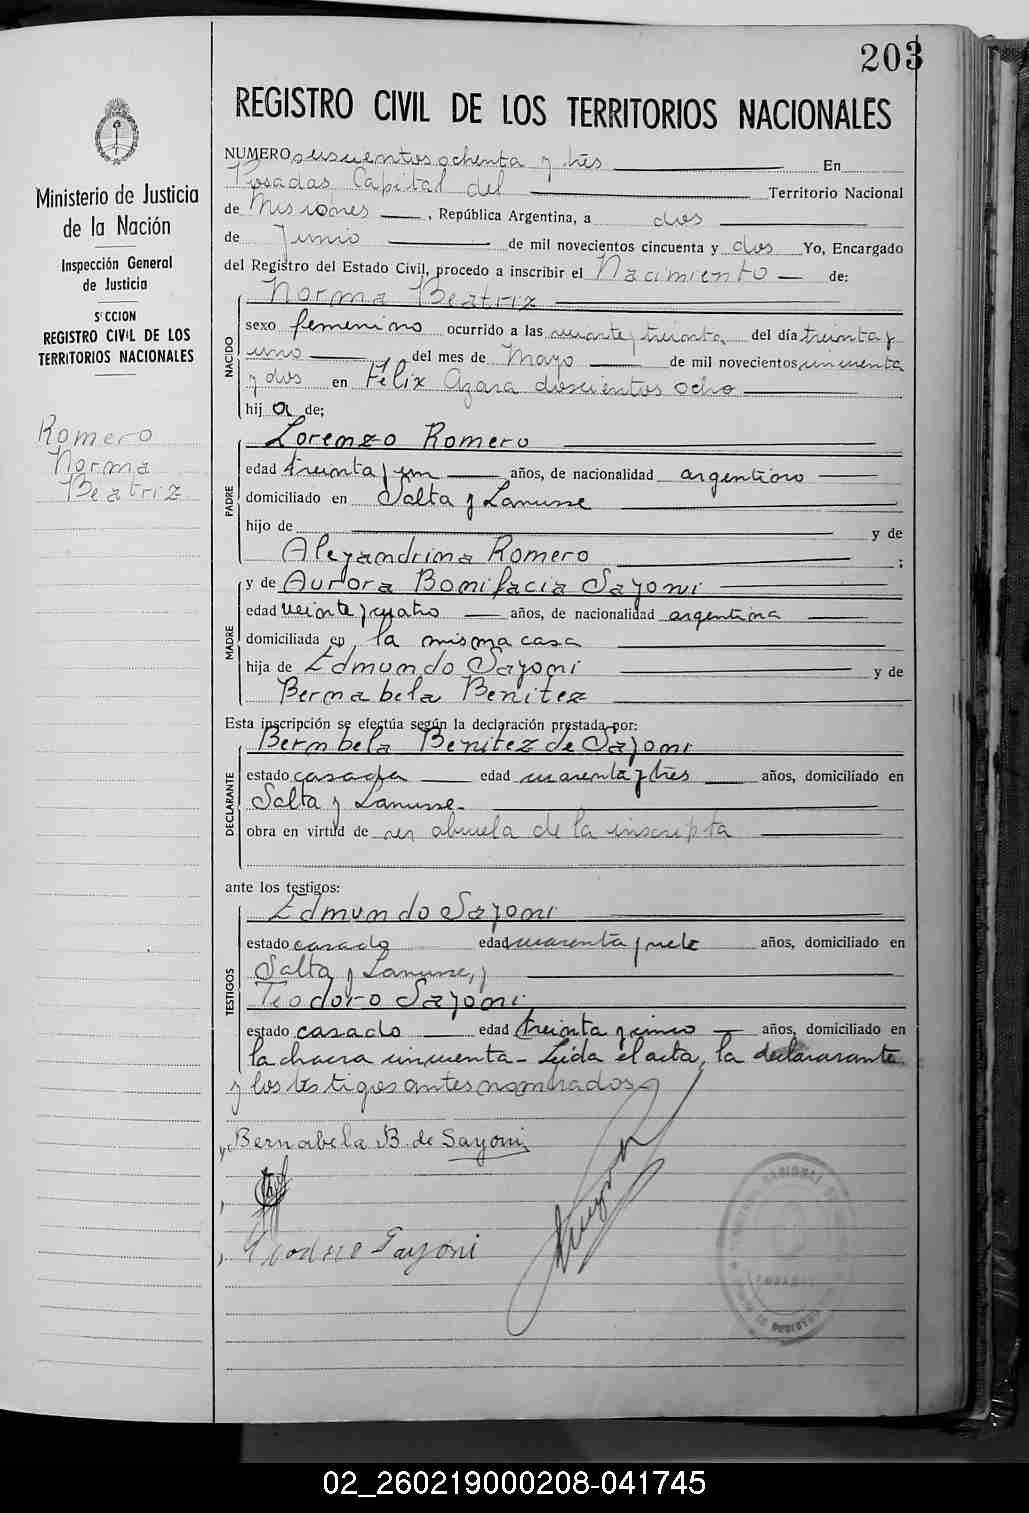 203
REGISTRO CIVIL DE LOS TERRITORIOS NACIONALES
Ministerio de Justicia
de la Nación
Inspección General
de Justicia
SECCION
REGISTRO CIVIL DE LOS
TERRITORIOS NACIONALES
Romero
Norma
Beatriz
NUMERO ochenta y tres En
Posadas Capital del Territorio Nacional
de Misiones, República Argentina, a dos
de Junio de mil novecientos cincuenta y dos Yo, Encargado
del Registro del Estado Civil, procedo a inscribir el Nacimiento de:
NACIDO
Norma Beatriz
sexo femenino ocurrido a las y treinta del día treinta y
uno, del mes de Mayo de mil novecientos cincuenta
y dos en Félix Azara doscientos ocho
hij a de;
PADRE
Lorenzo Romero
edad treinta y un años, de nacionalidad argentino
domiciliado en Salta y Lanusse
hijo de y de
Alejandrina Romero;
MADRE
y de Aurora Bonifacia Sayoni
edad veinte y cuatro años, de nacionalidad argentina
domiciliada en la misma casa
hija de Edmundo Sayoni y de
Bernabela Benitez
Esta inscripción se efectúa según la declaración prestada por:
DECLARANTE
Bernbela Benitez de Sayoni
estado casada edad cuarenta y tres años, domiciliado en
Salta y Lanusse.
obra en virtud de ser abuela de la inscripta
ante los testigos:
TESTIGOS
Edmundo Sayoni
estado casado edad cuarenta y siete años, domiciliado en
Salta y Lanusse, y
Teodoro Sayoni
estado casado edad treinta y cinco años, domiciliado en
la chacra cincuenta - Leida el acta, la declararante
y los testigos antes nombrados
Bernabela B. de Sayoni
Teodoro Sayoni
02_260219000208-041745